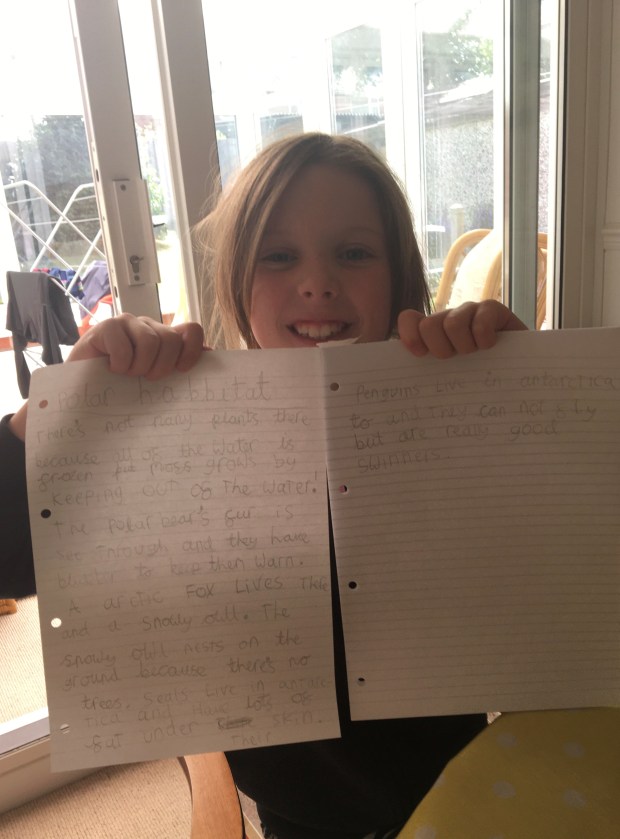 Polar habbitat
There's not many plants there
because all of the water is
frozen but moss grows by
keeping out of the water!
The Polar bear's fur is
see through and they have
blubber to keep then warn.
A arctic Fox Lives There
and a snowly owll. The
snowly owll nests on the
ground because there's no
trees. Seals Live in antarc-
tica and have lots of
fat under skin.
Their
Penguins Live in antarctica
to and They can not fly
but are really good
swimmers